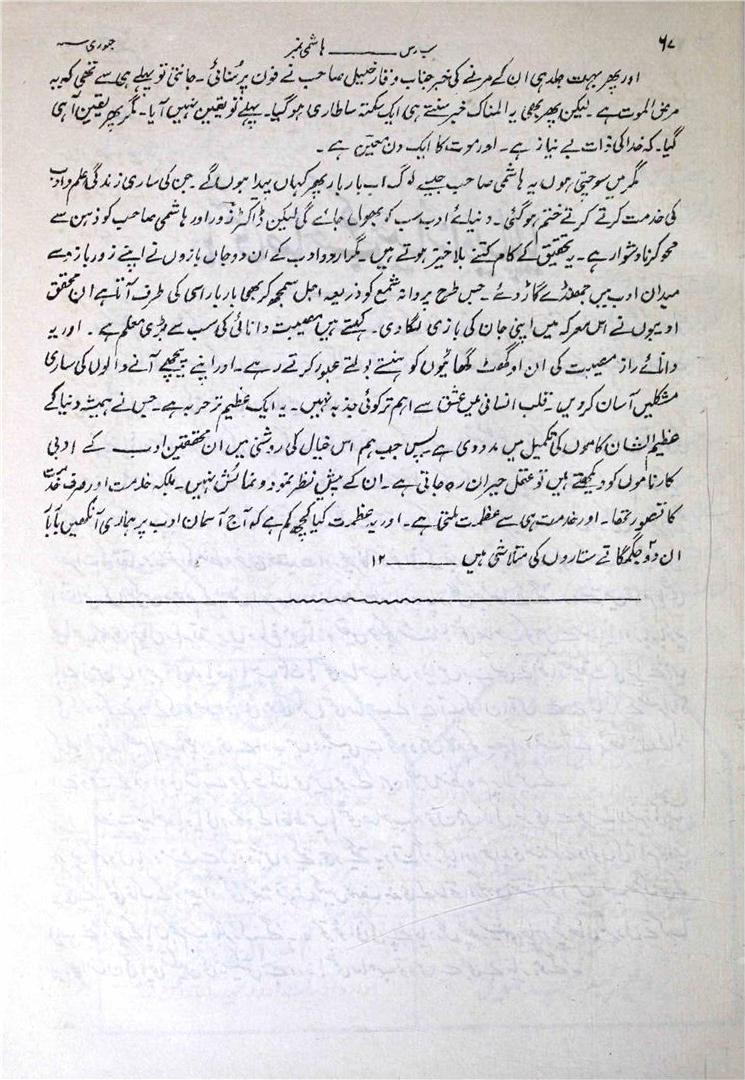 ۶۷ سب رس ــــــ ہاشمی نمبر جنوری سنہ
اور پھر بہت جلد ہی ان کے مرنے کی خبر جناب وقار خلیل صاحب نے فون پر سُنائی۔ جانتی تو پہلے ہی سے تھی کہ یہ
مرض الموت ہے۔ لیکن پھر بھی یہ المناک خبر سنتے ہی ایک سکتہ سا طاری ہو گیا۔ پہلے تو یقین نہیں آیا۔ مگر پھر یقین آ ہی
گیا۔ کہ خدا کی ذات بے نیاز ہے۔ اور موت کا ایک دن معین ہے ۔
مگر میں سوچتی ہوں یہ ہاشمی صاحب جیسے لوگ اب بار بار پھر کہاں پیدا ہوں گے ۔ جن کی ساری زندگی علم و ادب
کی خدمت کرتے کرتے ختم ہو گئی۔ دنیائے ادب سب کو بھول جائے گی لیکن ڈاکٹر زور اور ہاشمی صاحب کو ذہن سے
محو کرنا دشوار ہے۔ یہ تحقیق کے کام کتنے بلا خیز ہوتے ہیں۔ مگر اردو ادب کے ان دو جاں بازوں نے اپنے زورِ بازو سے
میدانِ ادب میں جھنڈے گاڑ دئے۔ جس طرح پروانہ شمع کو ذریعہ اجل سمجھ کر بھی بار بار اسی کی طرف آتا ہے ان محقق
ادیبوں نے اس معرکہ میں اپنی جان کی بازی لگا دی۔ کہتے ہیں مصیبت دانائی کی سب سے بڑی معلم ہے ۔ اور یہ
دانائے راز مصیبت کی ان اوگھٹ گھاٹیوں کو ہنستے بولتے عبور کرتے رہے۔ اور اپنے پیچھے آنے والوں کی ساری
مشکلیں آسان کر دیں۔ قلب انسانی میں عشق سے اہم تر کوئی جذبہ نہیں۔ یہ ایک عظیم تر حربہ ہے۔ جس نے ہمیشہ دنیا کے
عظیم الشان کاموں کی تکمیل میں مدد دی ہے پس جب ہم اس خیال کی روشنی میں ان محققین ادب کے ادبی
کارناموں کو دیکھتے ہیں تو عقل حیران رہ جاتی ہے۔ ان کے پیش نظر نمود و نمائش نہیں۔ بلکہ خدمت اور صرف خدمت
کا تصور تھا۔ اور خدمت ہی سے عظمت ملتی ہے۔ اور یہ عظمت کیا کچھ کم ہے کہ آج آسمانِ ادب پر ہماری آنکھیں بار بار
ان دو جگمگاتے ستاروں کی متلاشی ہیں ــــــ ۱۲